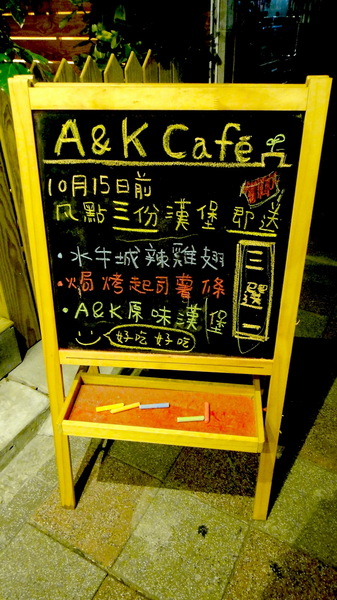 A & K Café
10月15日前
凡點三份漢堡 即送
・水牛城辣雞翅
・焗烤起司薯條
・A&K原味漢堡
三選一
好吃好吃